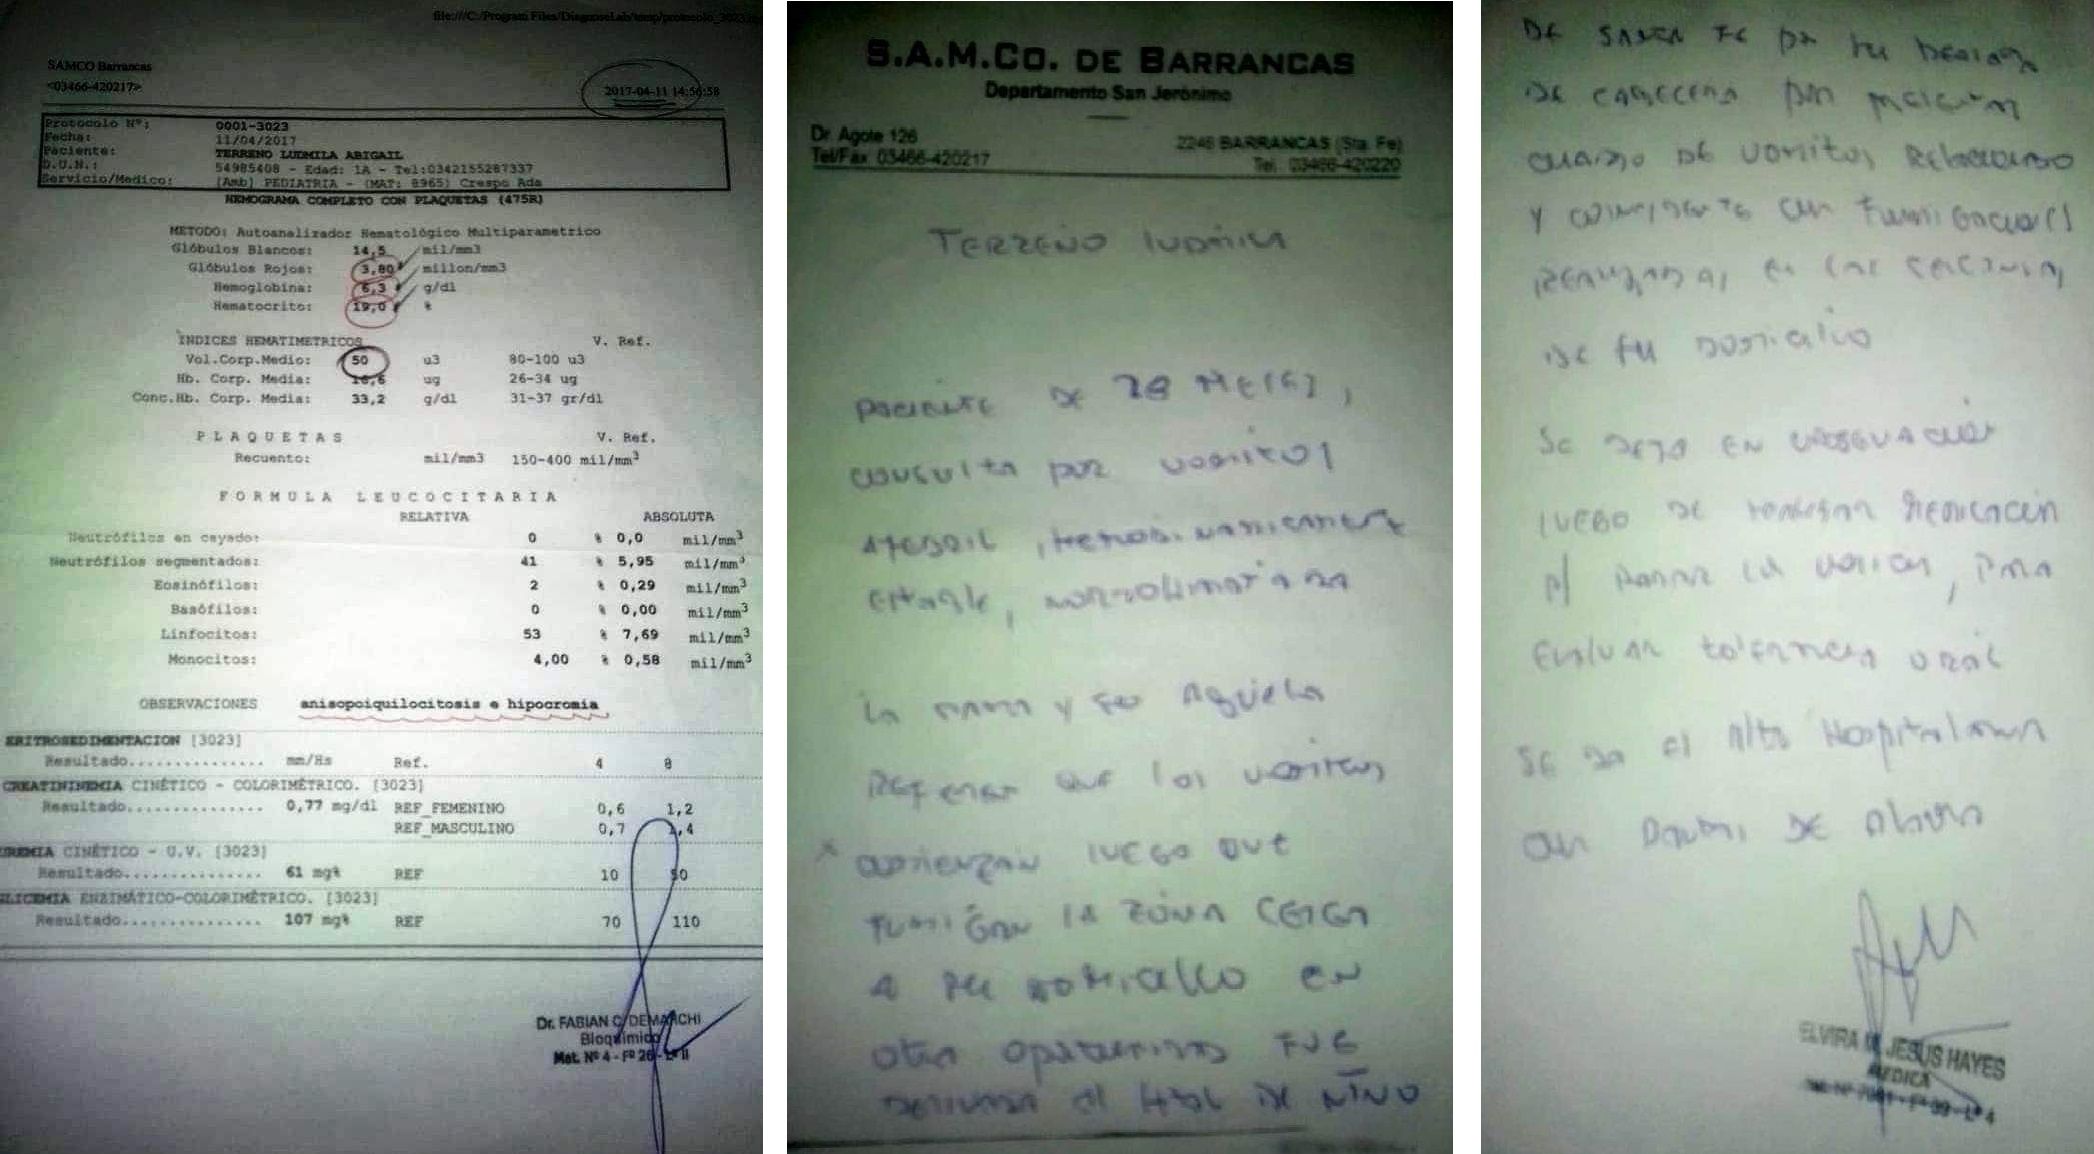 file:///C:/Program Files/DiagnoseLab/temp/protocolo_3023
SAMCO Barrancas
<03466-420217>
2017-04-11 14:56:58
Protocolo Nº: 0001-3023
Fecha: 11/04/2017
Paciente: TERRENO LUDMILA ABIGAIL
D.U.N.: 54985408 - Edad: 1A - Tel:0342155287337
Servicio/Medico: (Amb) PEDIATRIA - (MAT: 8965) Crespo Ada
HEMOGRAMA COMPLETO CON PLAQUETAS (475R)
METODO: Autoanalizador Hematológico Multiparametrico
Glóbulos Blancos: 14,5 mil/mm3
Glóbulos Rojos: 3,80 millon/mm3
Hemoglobina: 6,3 g/dl
Hematocrito: 19,0 %
INDICES HEMATIMETRICOS V. Ref.
Vol.Corp.Medio: 50 u3 80-100 u3
Hb. Corp. Media: 16,6 ug 26-34 ug
Conc.Hb. Corp. Media: 33,2 g/dl 31-37 gr/dl
PLAQUETAS V. Ref.
Recuento: mil/mm3 150-400 mil/mm³
FORMULA LEUCOCITARIA
RELATIVA ABSOLUTA
Neutrófilos en cayado: 0 % 0,0 mil/mm³
Neutrófilos segmentados: 41 % 5,95 mil/mm³
Eosinófilos: 2 % 0,29 mil/mm³
Basófilos: 0 % 0,00 mil/mm³
Linfocitos: 53 % 7,69 mil/mm³
Monocitos: 4,00 % 0,58 mil/mm³
OBSERVACIONES anisopoiquilocitosis e hipocromia
ERITROSEDIMENTACION [3023]
Resultado............... mm/Hs Ref. 4 8
CREATININEMIA CINÉTICO - COLORIMÉTRICO. [3023]
Resultado............... 0,77 mg/dl REF_FEMENINO 0,6 1,2
REF_MASCULINO 0,7 1,4
UREMIA CINÉTICO - U.V. [3023]
Resultado............... 61 mg% REF 10 50
GLICEMIA ENZIMÁTICO-COLORIMÉTRICO. [3023]
Resultado............... 107 mg% REF 70 110
Dr. FABIAN C. DEMARCHI
Bioquímico
Mat. Nº 4 - Fº 26 - Lº II
S.A.M.CO. DE BARRANCAS
Departamento San Jerónimo
Dr. Agote 126 2246 BARRANCAS (Sta. Fe)
Tel/Fax 03466-420217 Tel. 03466-420220
TERREÑO LUDMILA
PACIENTE DE 28 MESES,
CONSULTA POR VOMITOS
AFEBRIL, HEMODINAMICAMENTE
ESTABLE, NORMOHIDRATADA
LA MAMA Y SU ABUELA
REFIEREN QUE LOS VOMITOS
COMIENZAN LUEGO QUE
FUMIGAN LA ZONA CERCA
A SU DOMICILIO EN
OTRA OPORTUNIDAD FUE
DERIVADA AL HTAL DE NIÑO
DE SANTA FE POR SU
DE CABECERA POR PRESENTAR
CUADRO DE VOMITOS RELACIONADO
Y COINCIDENTE CON FUMIGACIONES
REALIZADAS EN LAS CERCANIAS
DE SU DOMICILIO
SE DEJA EN OBSERVACION
LUEGO DE MEDICACION
P/ PARAR LOS VOMITOS, PARA
EVALUAR TOLERANCIA ORAL
SE DA EL ALTA HOSPITALARIA
CON PAUTAS DE ALARMA
ELVIRA M. JESUS HAYES
MEDICA